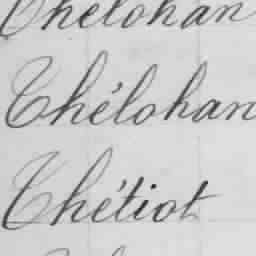 Thélohan
Thélohan
Thétiot